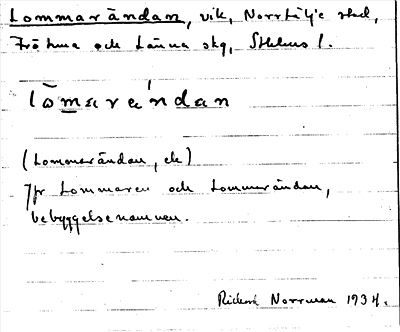 Lommarändan, vik, Norrtälje stad,
Frötuna och Länna skg, Sthlms l.
lòmarɐándan
(Lommarändan, ek)
Jfr Lommaren och Lommarändan,
bebyggelsenamnen.
Rickard Norrman 1934.